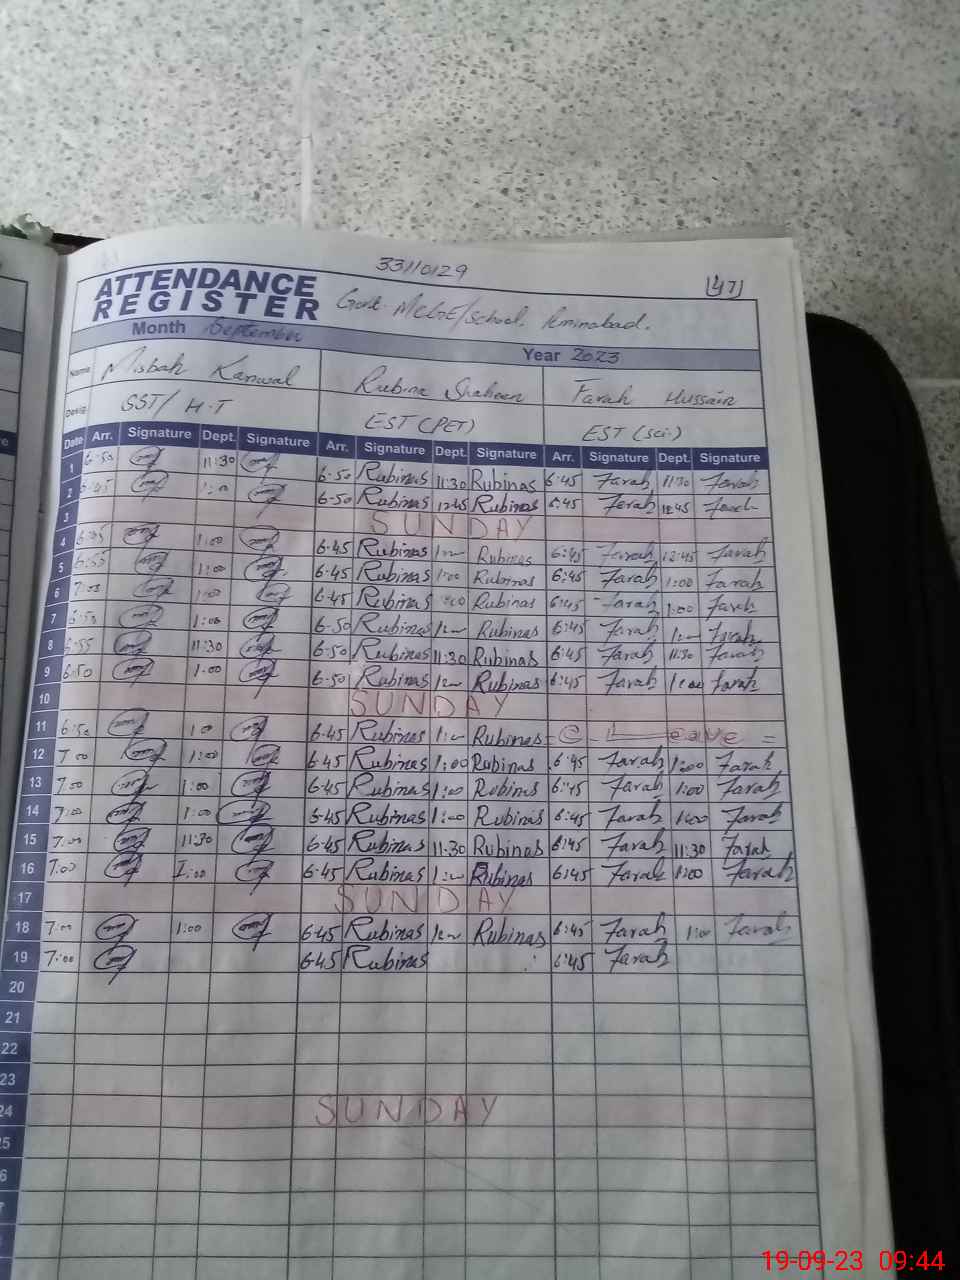 33110129
47
ATTENDANCE
REGISTER
Govt. MCGE/School, Aminabad.
Month September
Year 2023
Name Misbah Kanwal Rubina Shaheen Farah Hussain
Desig SST/ H.T EST (PET) EST (Sci)
Date Arr. Signature Dept. Signature Arr. Signature Dept. Signature Arr. Signature Dept. Signature
1 6:50 11:30 6.50 Rubinas 11:30 Rubinas 6:45 Farah 11:30 Farah
2 6:45 1:00 6.50 Rubinas 12:45 Rubinas 6:45 Farah 12:45 Farah
3 SUNDAY
4 1:00 6.45 Rubinas Rubinas 6:45 Farah 12:45 Farah
5 6:55 1:00 6.45 Rubinas 1:00 Rubinas 6:45 Farah 1:00 Farah
6 7:00 1:00 6.45 Rubinas 1:00 Rubinas 6:45 Farah 1:00 Farah
7 6:50 1:00 6.50 Rubinas Rubinas 6:45 Farah Farah
8 6:55 11:30 6.50 Rubinas 11:30 Rubinas 6:45 Farah 11:30 Farah
9 6:50 1:00 6.50 Rubinas Rubinas 6:45 Farah 1:00 Farah
10 SUNDAY
11 6:50 1:00 6.45 Rubinas Rubinas C. Leave
12 7:00 1:00 6.45 Rubinas 1:00 Rubinas 6:45 Farah 1:00 Farah
13 7:00 1:00 6.45 Rubinas 1:00 Rubinas 6:45 Farah 1:00 Farah
14 7:00 1:00 6.45 Rubinas 1:00 Rubinas 6:45 Farah 1:00 Farah
15 7:00 11:30 6.45 Rubinas 11:30 Rubinas 6:45 Farah 11:30 Farah
16 7:00 1:00 6.45 Rubinas Rubinas 6:45 Farah 1:00 Farah
17 SUNDAY
18 7:00 1:00 6.45 Rubinas Rubinas 6:45 Farah 1:00 Farah
19 7:00 6.45 Rubinas 6:45 Farah
20
21
22
23
24 SUNDAY
5
6
7
19-09-23 09:44